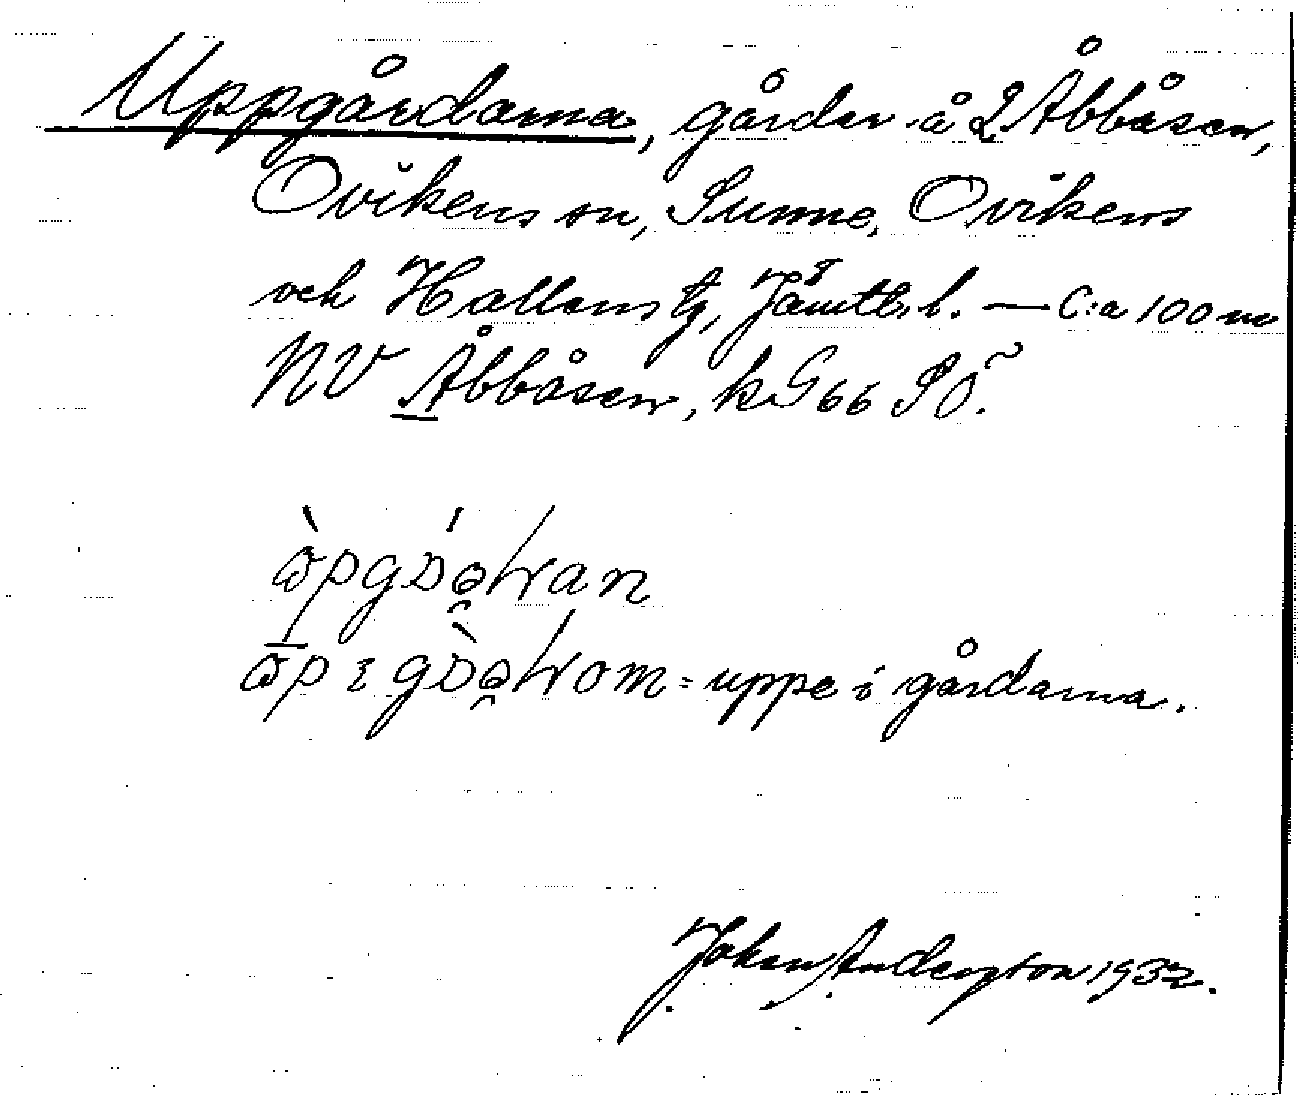 Uppgårdarna, gårdar å 2 Åbbåsen,
Ovikens sn, Sunne, Ovikens
och Hallens tg, Jämtl. l. — C:a 100 m
NV Åbbåsen, k G 66 SÖ.
uppe i gårdarna.
Johan Andersson 1932.